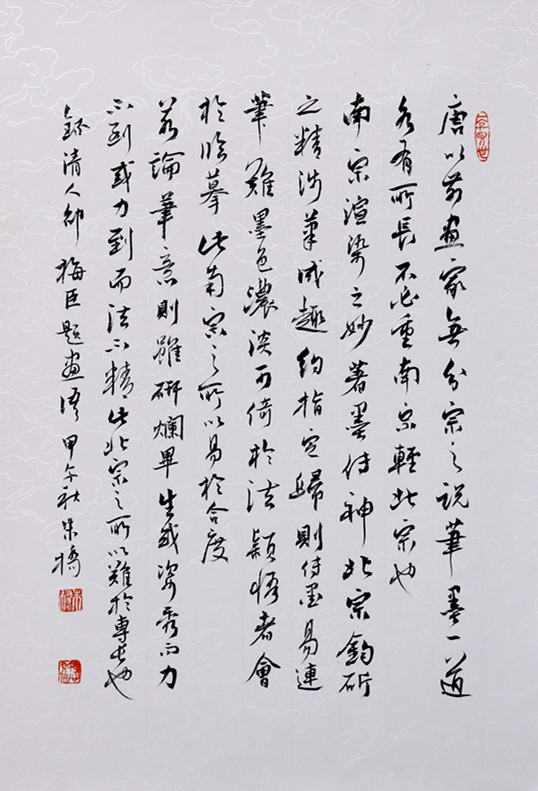 唐以前畫家無分宗之說筆墨一道
各有所長不必重南宗輕北宗也
南宗渲染之妙著墨傳神北宗鈎斫
之精涉筆成趣約指定歸則傳墨易運
筆難墨色濃淡可倚於法穎悟者會
於臨摹此南宗之所以易於合度
若論筆意則雖研爛畢生或姿秀而力
不到或力到而法不精此北宗之所以難於專長也
錄清人邵梅臣題畫語甲午秋朱橋